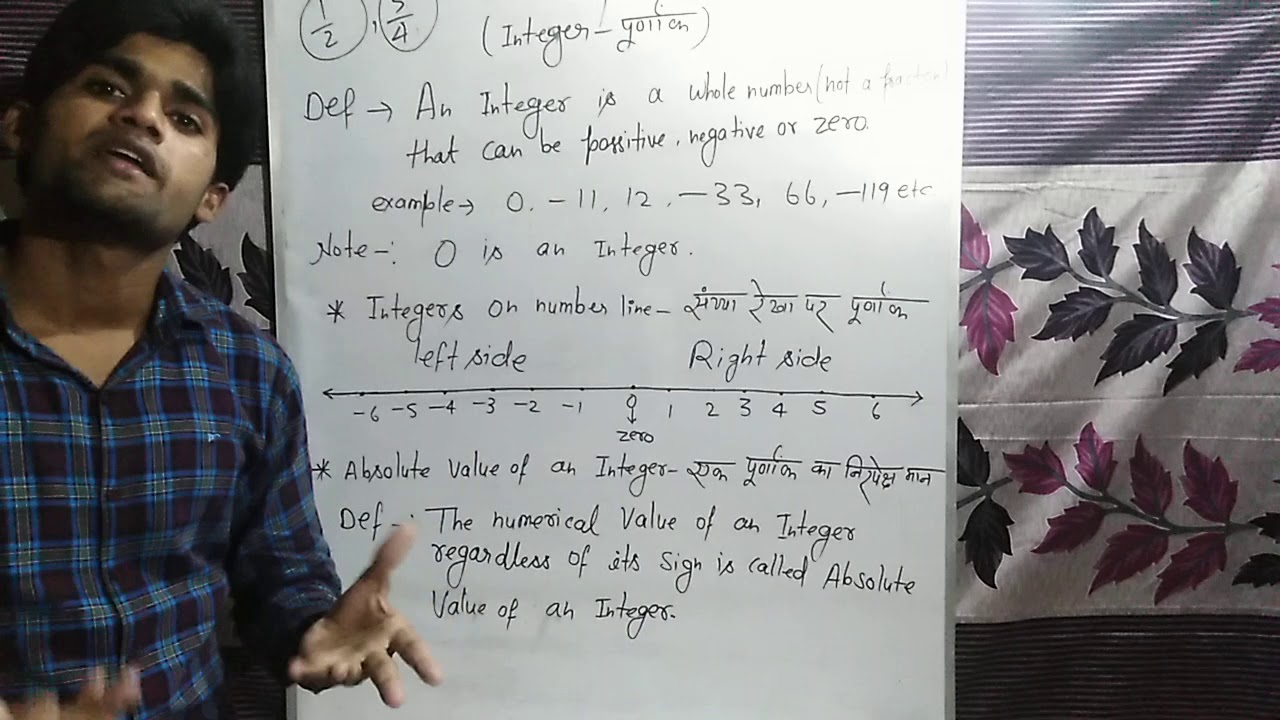 1/2, 3/4
(Integer - पूर्णांक)
Def → An Integer is a whole number (not a fraction)
that can be possitive, negative or zero.
example → 0, -11, 12, -33, 66, -119 etc
Note -: 0 is an Integer.
* Integers on number line - संख्या रेखा पर पूर्णांक
left side Right side
-6 -5 -4 -3 -2 -1 0 1 2 3 4 5 6
zero
* Absolute Value of an Integer - एक पूर्णांक का निरपेक्ष मान
Def -: The numerical Value of an Integer
regardless of its sign is called Absolute
Value of an Integer.